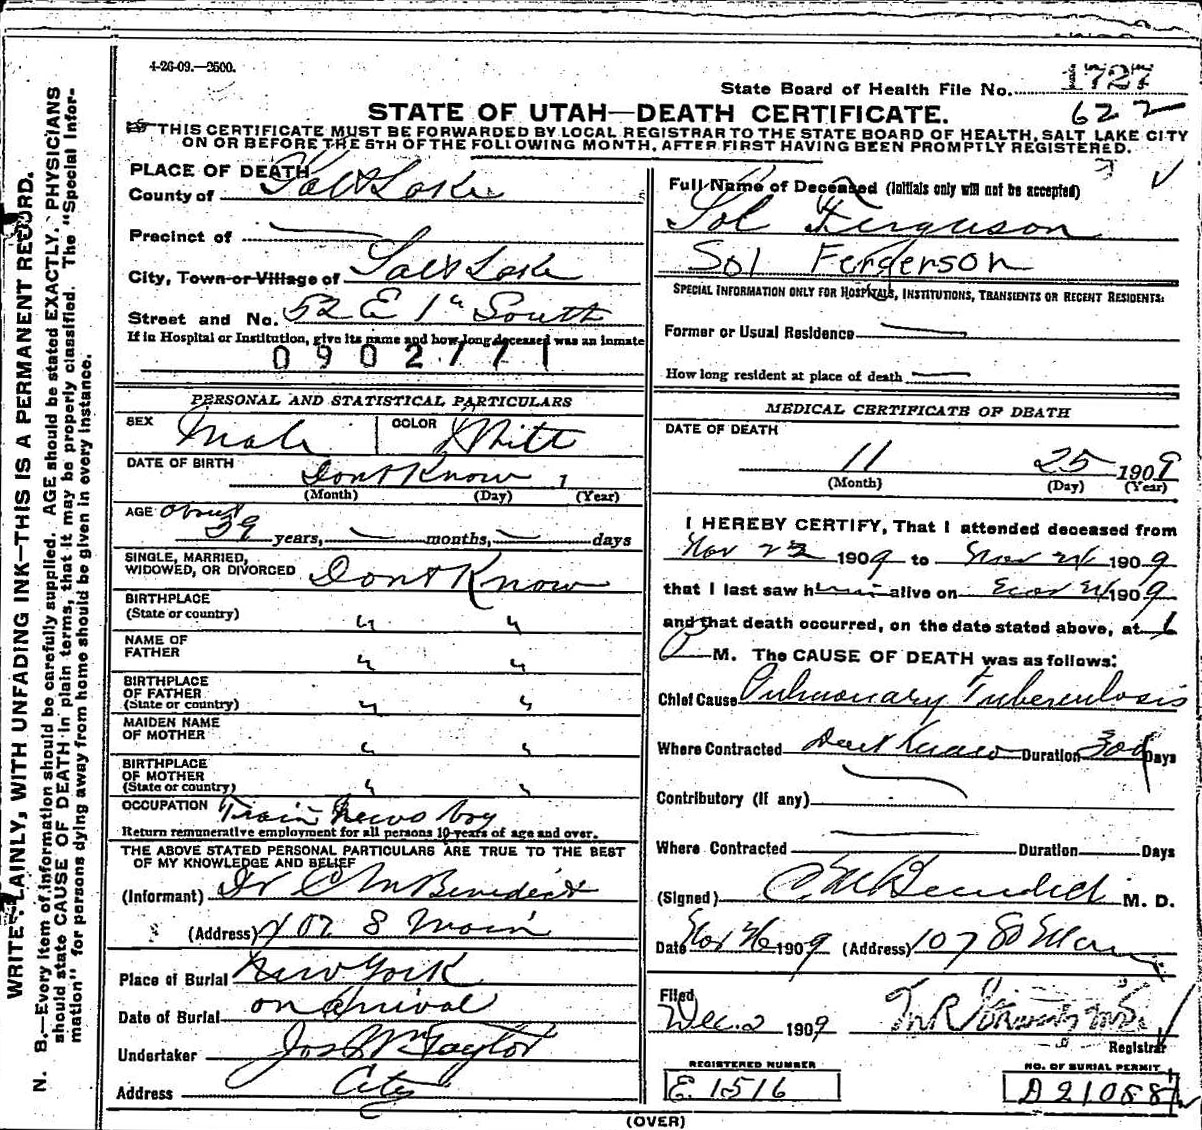 4-26-09.—2500.
State Board of Health File No. 1727
622
STATE OF UTAH—DEATH CERTIFICATE.
THIS CERTIFICATE MUST BE FORWARDED BY LOCAL REGISTRAR TO THE STATE BOARD OF HEALTH, SALT LAKE CITY
ON OR BEFORE THE 5TH OF THE FOLLOWING MONTH, AFTER FIRST HAVING BEEN PROMPTLY REGISTERED.
WRITE PLAINLY, WITH UNFADING INK—THIS IS A PERMANENT RECORD.
N. B.—Every item of information should be carefully supplied. AGE should be stated EXACTLY. PHYSICIANS
should state CAUSE OF DEATH in plain terms, that it may be properly classified. The "Special Infor-
mation" for persons dying away from home should be given in every instance.
PLACE OF DEATH
County of Salt Lake
Precinct of
City, Town or Village of Salt Lake
Street and No. 52 E 1st South
If in Hospital or Institution, give its name and how long deceased was an inmate
0902771
PERSONAL AND STATISTICAL PARTICULARS
SEX Male COLOR White
DATE OF BIRTH Dont Know 1
(Month) (Day) (Year)
AGE about
39 years, — months, — days
SINGLE, MARRIED,
WIDOWED, OR DIVORCED Dont Know
BIRTHPLACE
(State or country) " "
NAME OF
FATHER " "
BIRTHPLACE
OF FATHER
(State or country) " "
MAIDEN NAME
OF MOTHER " "
BIRTHPLACE
OF MOTHER
(State or country) " "
OCCUPATION Train News boy
Return remunerative employment for all persons 10 years of age and over.
THE ABOVE STATED PERSONAL PARTICULARS ARE TRUE TO THE BEST
OF MY KNOWLEDGE AND BELIEF
(Informant) Dr C M Benedict
(Address) 107 S Main
Place of Burial New York
Date of Burial on Arrival
Undertaker Jos Wm Taylor
Address City
Full Name of Deceased (Initials only will not be accepted)
Sol Ferguson
Sol Fergerson
SPECIAL INFORMATION ONLY FOR HOSPITALS, INSTITUTIONS, TRANSIENTS OR RECENT RESIDENTS:
Former or Usual Residence —
How long resident at place of death —
MEDICAL CERTIFICATE OF DEATH
DATE OF DEATH
11 25 1909
(Month) (Day) (Year)
I HEREBY CERTIFY, That I attended deceased from
Nov 23 1909 to Nov 24 1909
that I last saw him alive on Nov 24 1909
and that death occurred, on the date stated above, at 6
P M. The CAUSE OF DEATH was as follows:
Chief Cause Pulmonary Tuberculosis
Where Contracted Dont Know Duration Days
Contributory (if any)
Where Contracted Duration Days
(Signed) C M Benedict M. D.
Date Nov 26 1909 (Address) 107 So Main
Filed
Dec. 2 1909
Registrar
REGISTERED NUMBER
E 1516
NO. OF BURIAL PERMIT
A 21088
(OVER)